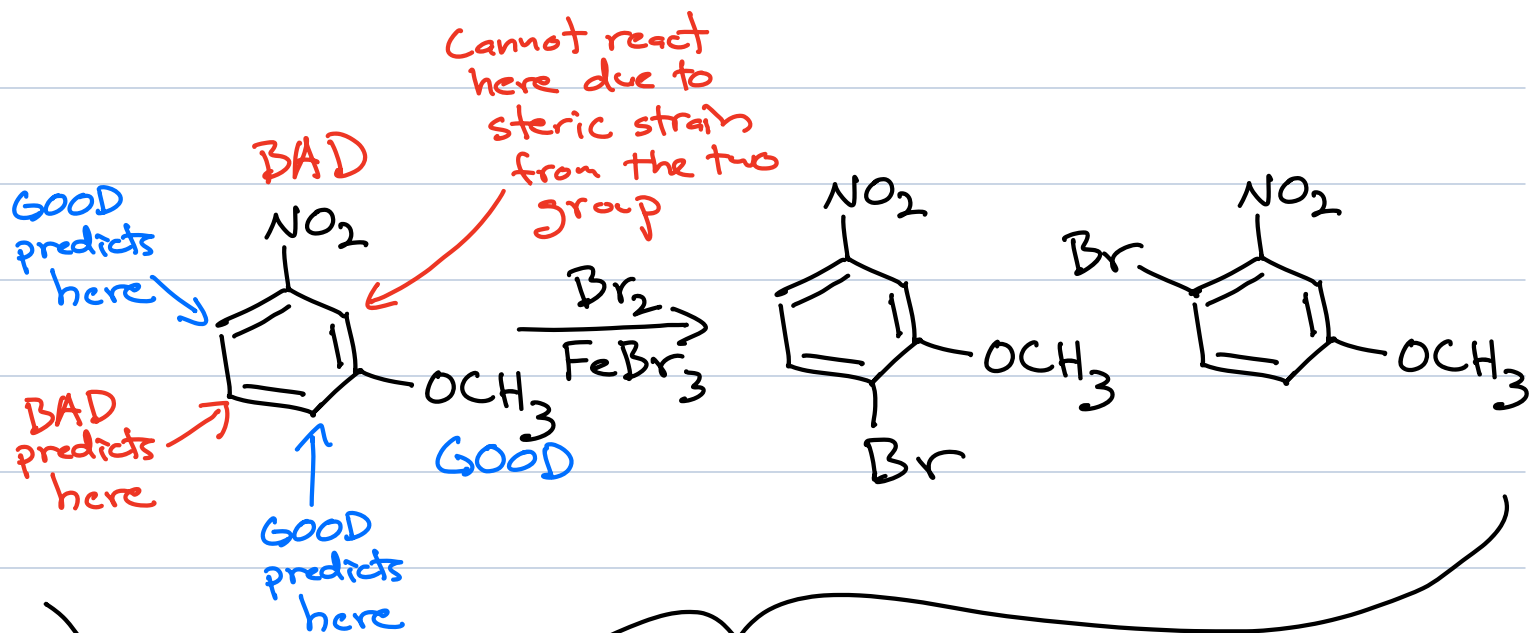 Cannot react
here due to
steric strain
from the two
group
BAD
GOOD
predicts
here
NO2
BAD
predicts
here
OCH3
GOOD
GOOD
predicts
here
Br2
FeBr3
NO2
OCH3
Br
NO2
Br
OCH3